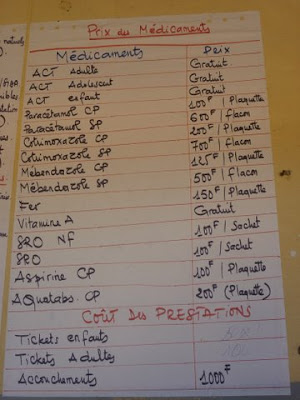 Prix des Médicaments
Médicaments Prix
ACT Adulte Gratuit
ACT Adolescent Gratuit
ACT enfant Gratuit
Paracétamol CP 100F / Plaquette
Paracétamol SP 600F / flacon
Cotrimoxazole CP 200F / Plaquette
Cotrimoxazole SP 700F / flacon
Mébendazole CP 125F / Plaquette
Mébendazole SP 500F / Flacon
Fer 150F / Plaquette
Vitamine A Gratuit
SRO NF 100F / Sachet
SRO 100F / Sachet
Aspirine CP 100F / Plaquette
AQuatabs CP 200F (Plaquette)
COÛT Des PRESTATIONS
Tickets enfants
Tickets Adultes
Accouchements 1000F